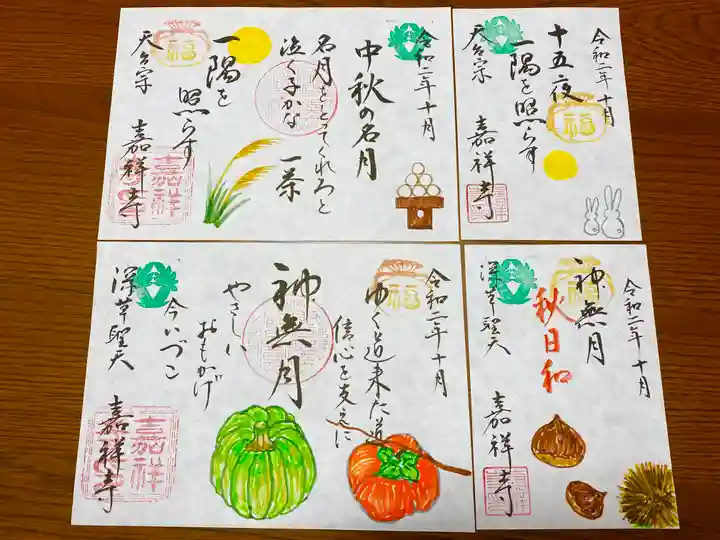 令和二年十月
中秋の名月
名月をとってくれろと
泣く子かな
一茶
一隅を
照らす
天台宗
嘉祥寺
福
嘉祥
令和二年十月
十五夜
一隅を照らす
天台宗
嘉祥寺
福
令和二年十月
ゆく道来た道
信心を支えに
神無月
やさしい
おもかげ
今いづこ
深草聖天
嘉祥寺
福
嘉祥
令和二年十月
神無月
秋日和
深草聖天
嘉祥寺